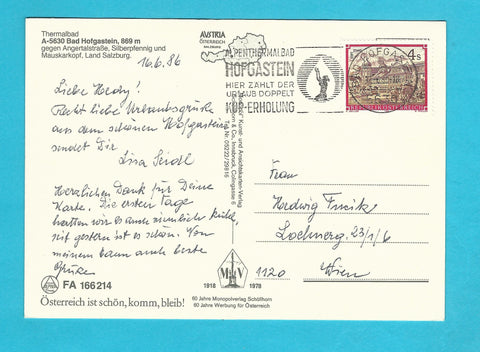 Thermalbad
A-5630 Bad Hofgastein, 869 m
gegen Angertalstraße, Silberpfennig und
Mauskarkopf, Land Salzburg.
16.6.86
Liebe Hedy!
Recht liebe Urlaubsgrüße
aus dem schönen Hofgastein
sendet Dir
Lisa Seidl
Herzlichen Dank für Deine
Karte. Die ersten Tage
hatten wir es auch ziemlich kühl,
seit gestern ist es schön. Von
meinem Mann auch beste
Grüße
FA 166 214
Österreich ist schön, komm, bleib!
AUSTRIA
ÖSTERREICH
ALPENTHERMALBAD
HOFGASTEIN
HIER ZÄHLT DER
URLAUB DOPPELT
KUR-ERHOLUNG
HOFGASTEIN
4 S
REPUBLIK ÖSTERREICH
Kunst- und Ansichtskarten-Verlag
Schöllhorn & Co., Innsbruck, Colingasse 6
Tel. Nr. 05222/29916
1918
MV
1978
60 Jahre Monopolverlag Schöllhorn
60 Jahre Werbung für Österreich
Frau
Hedwig
Lochnerg. 23/1/6
1120
Wien